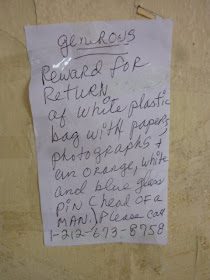 generous
Reward for
Return
of white plastic
bag with papers
photographs &
an orange, white
and blue glass
pin (head of a
man.) Please call
1-212-673-8758